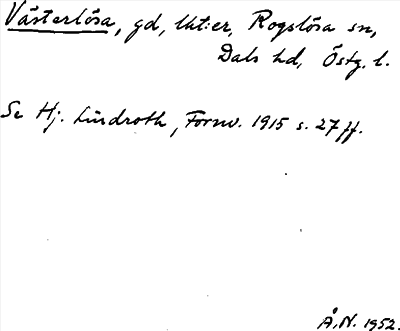 Västerlösa, gd, lkt:er, Rogslösa sn,
Dals hd, Östg. l.
Se Hj. Lindroth, Fornv. 1915 s. 27 ff.
Å.N. 1952.